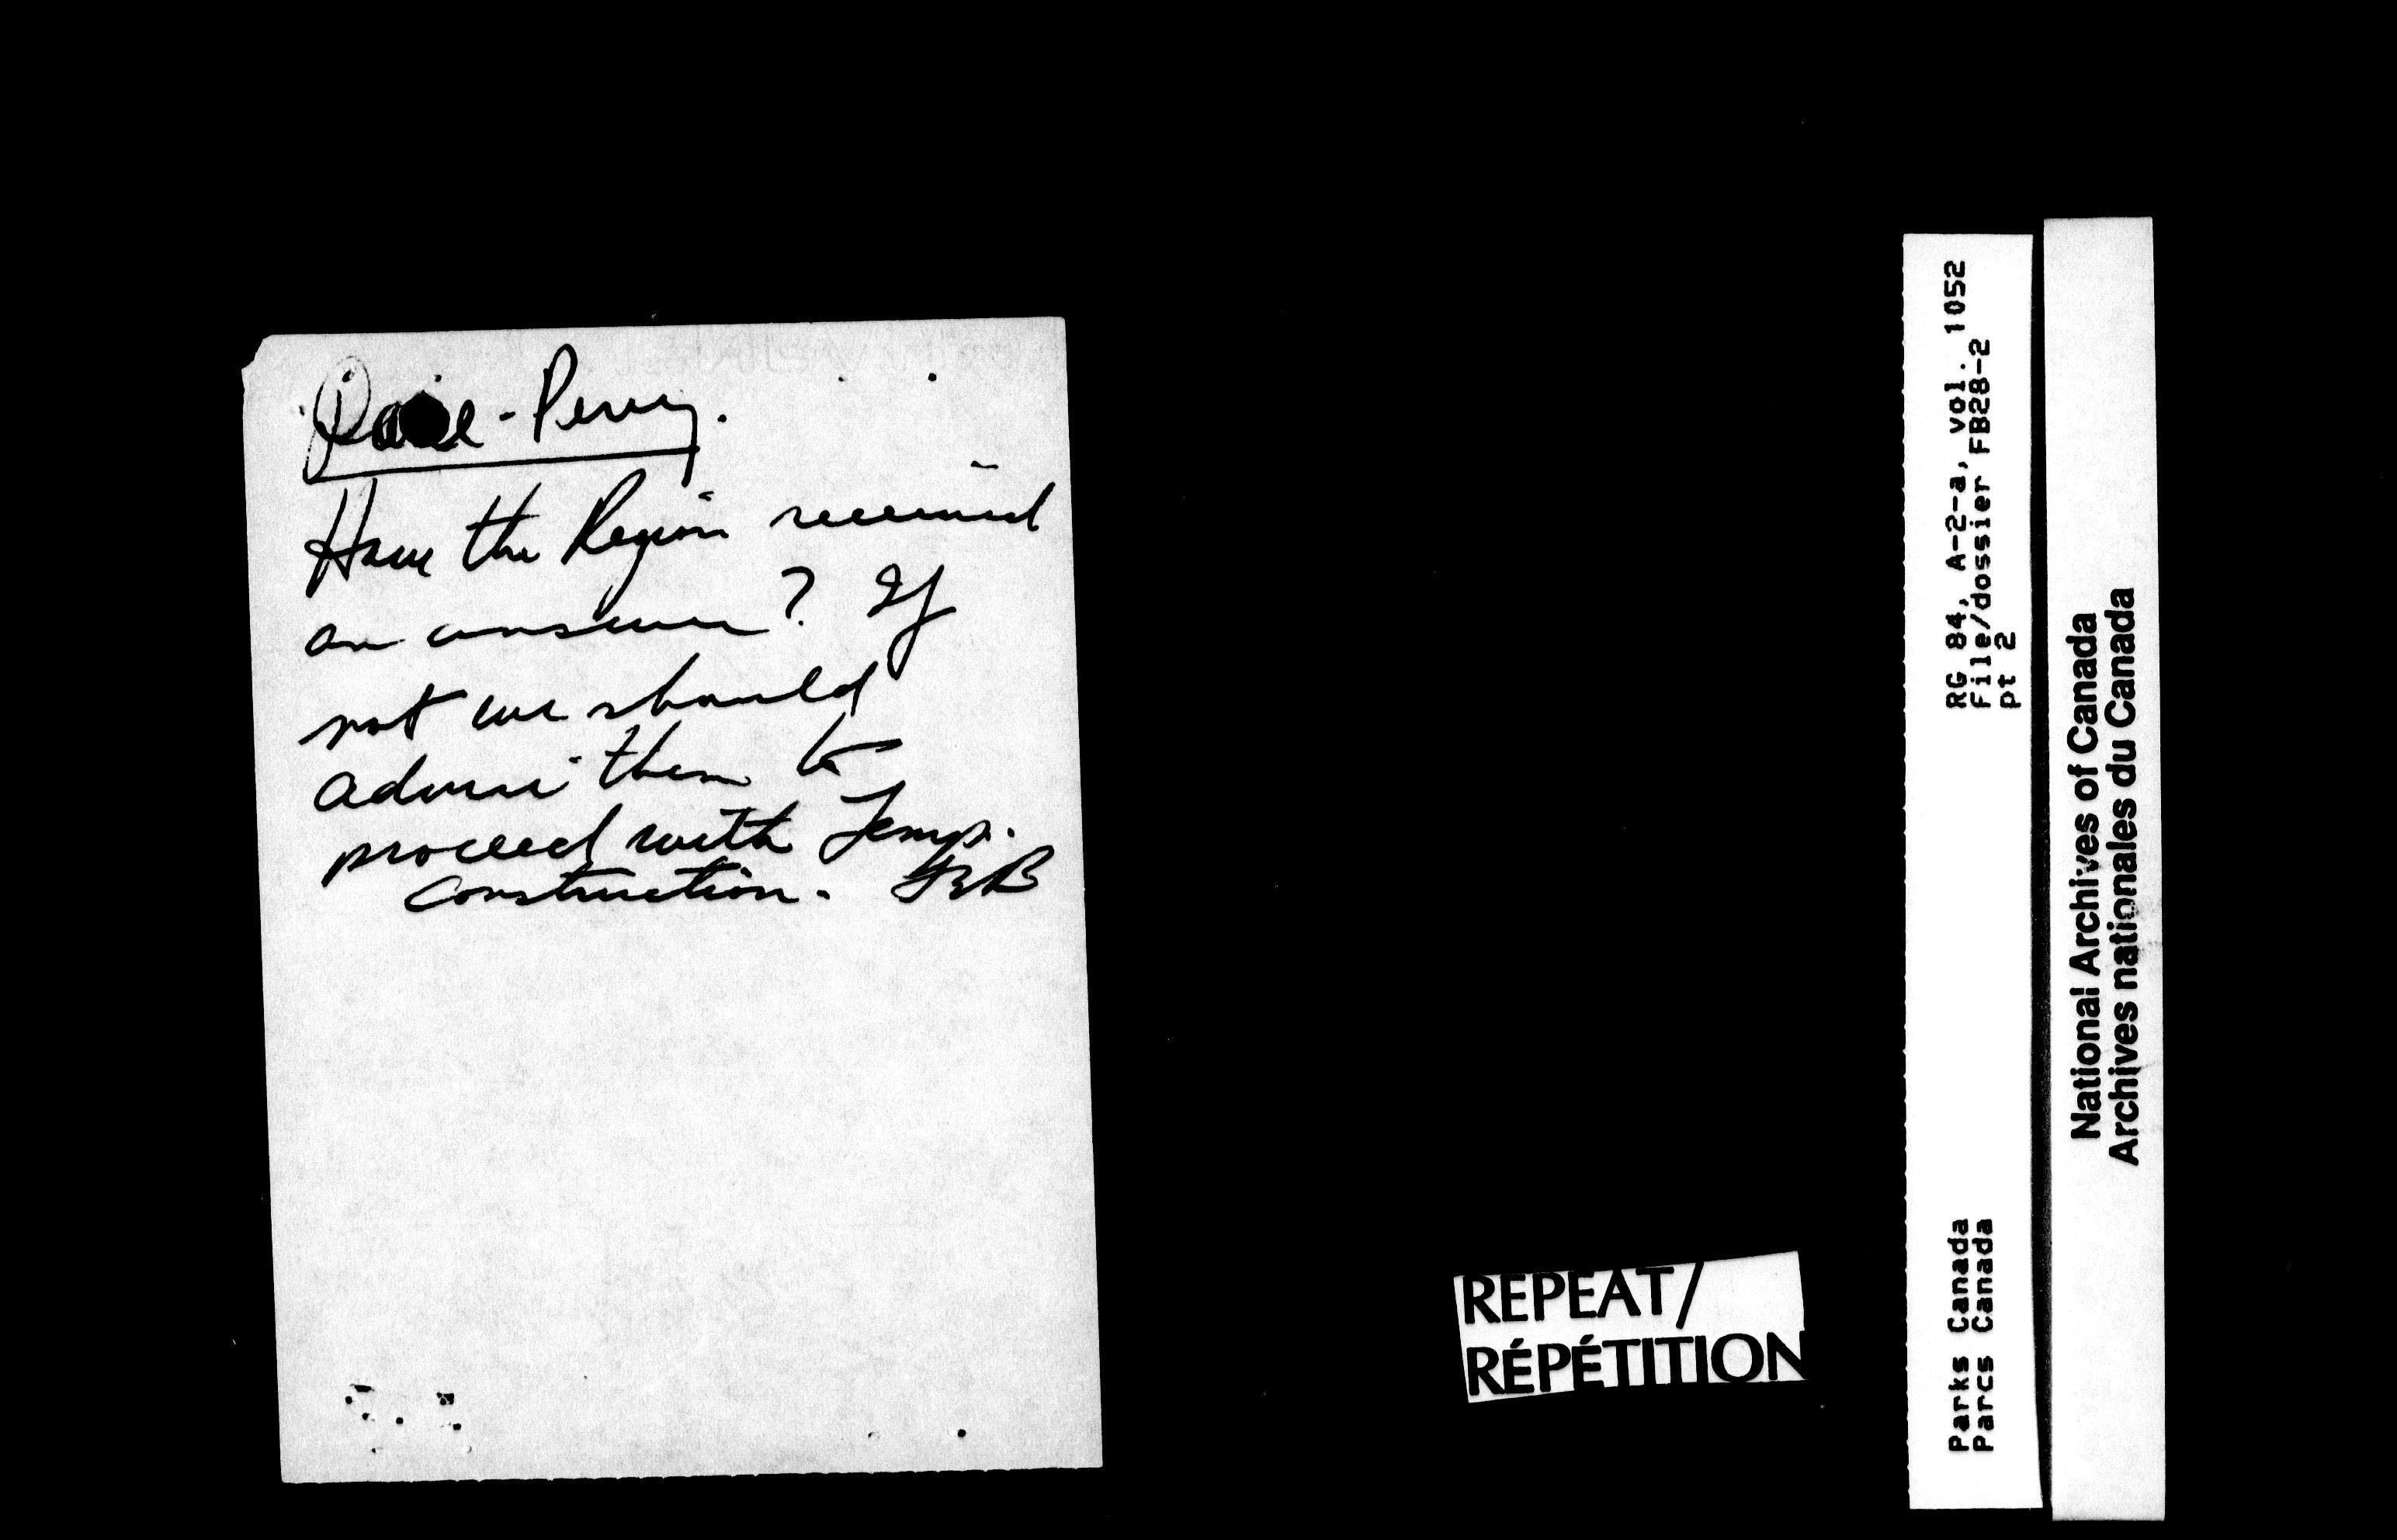 - Perry.
Have the Region received
an answer? If
not we should
advise them to
proceed with Temp.
construction.
REPEAT/
RÉPÉTITION
RG 84, A-2-a, vol. 1052
File/dossier FB28-2
pt 2
Parks Canada
Parcs Canada
National Archives of Canada
Archives nationales du Canada